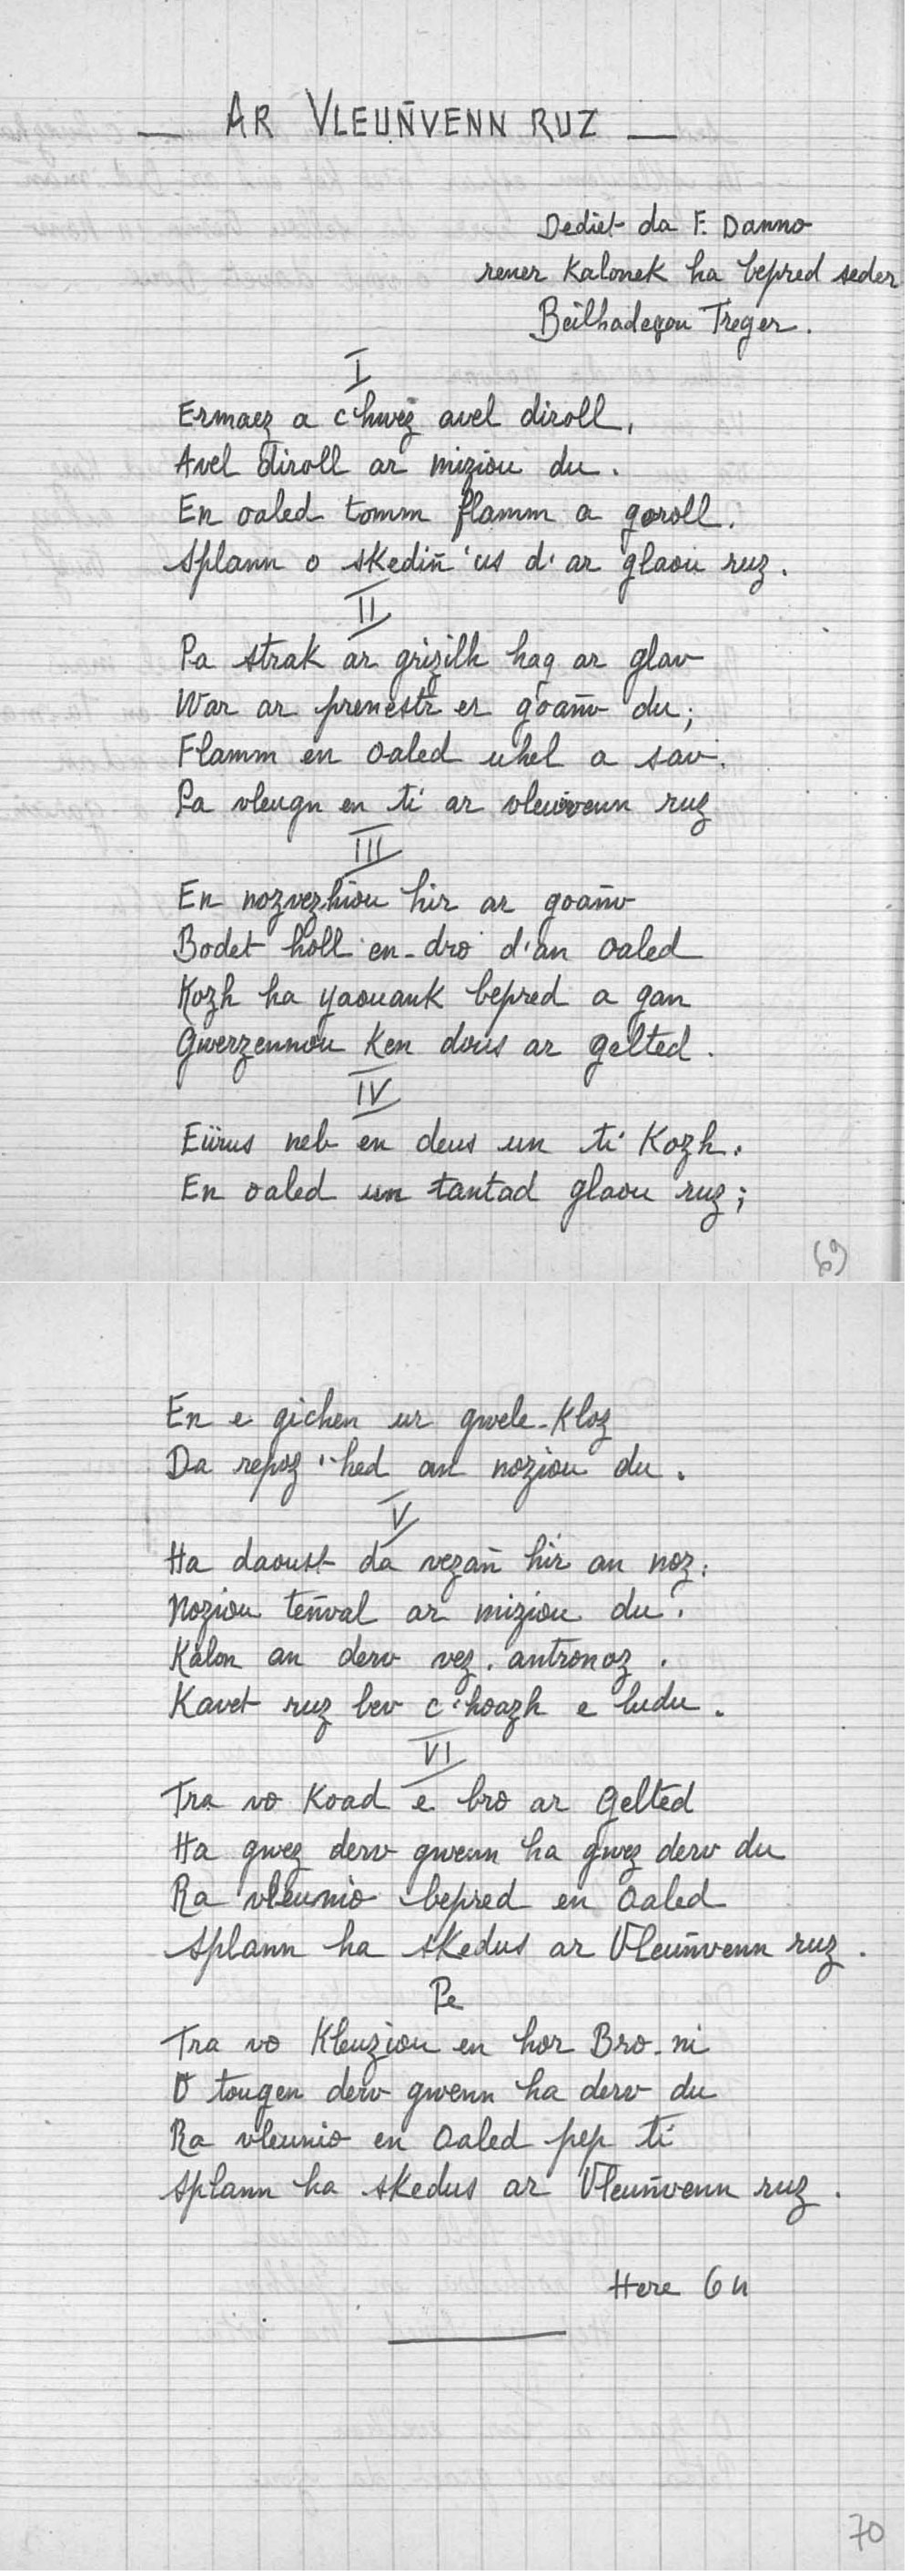 — AR VLEUÑVENN RUZ —
Dediet da F. Danno
rener Kalonek ha bepred seder
Beilhadegou Treger.
I
Ermaez a c'hwez avel diroll,
Avel diroll ar miziou du.
En oaled tomm flamm a goroll.
Splann o skediñ 'us d'ar glaou ruz.
II
Pa strak ar grizilh hag ar glav
War ar prenestr er goañv du;
Flamm en oaled uhel a sav.
Pa vleugn en ti ar vleuvenn ruz
III
En nozvezhiou hir ar goañv
Bodet holl en-dro d'an oaled
Kozh ha yaouank bepred a gan
Gwerzennou Ken dous ar gelted.
IV
Eürus neb en deus un ti Kozh.
En oaled un tantad glaou ruz;
69
En e gichen ur gwele-Kloz
Da repoz '-hed an noziou du.
V
Ha daoust da vezañ hir an noz.
Noziou teñval ar miziou du.
Kalon an derv vez. antronoz.
Kavet ruz bev c'hoazh e ludu.
VI
Tra vo Koad e bro ar Gelted
Ha gwez derv gwenn ha gwez derv du
Ra vleunio bepred en Oaled
Splann ha skedus ar Vleuñvenn ruz.
Pe
Tra vo Kleuziou en hor Bro-ni
O tougen derv gwenn ha derv du
Ra vleunio en Oaled pep ti
Splann ha skedus ar Vleuñvenn ruz.
Here 64
70